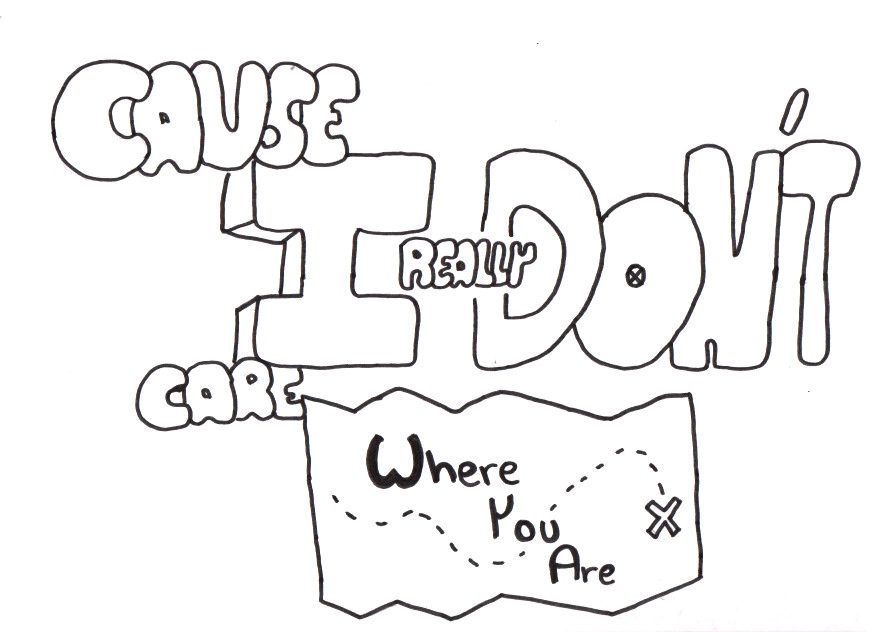 CAUSE
I REALLY DON'T
CARE
Where
You
Are